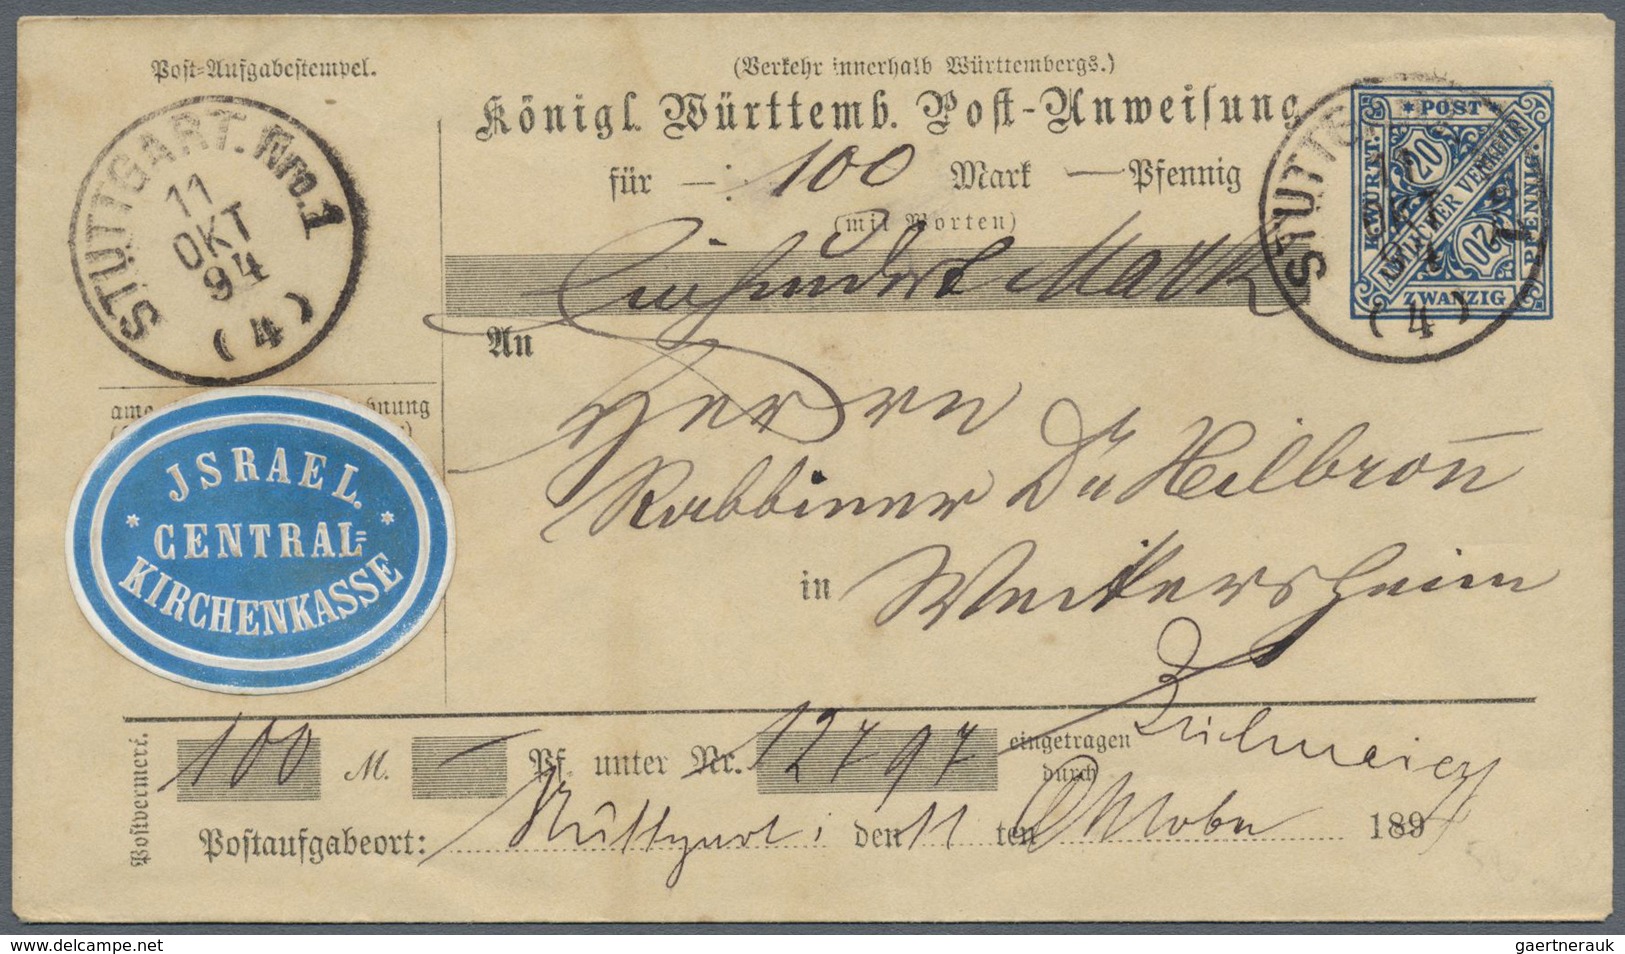 Post-Aufgabestempel.
(Verkehr innerhalb Württembergs.)
Königl. Württemb. Post-Anweisung
für 100 Mark — Pfennig
(mit Worten)
Einhundert Mark
An
Herrn
Rabbiner Dr Heilbron̄
in Weikersheim
STUTTGART. Nro. 1
11
OKT
94
(4)
* POST *
K. WÜRTT.
20
AMTLICHER VERKEHR
20
PFENNIG.
ZWANZIG
(4)
nung
JSRAEL.
* CENTRAL= *
KIRCHENKASSE
Postvermerk.
100 M. — Pf. unter Nr. 12797 eingetragen
durch
Postaufgabeort: Stuttgart, den 11 ten Oktober 1894
delcampe.net
gaertnerauk